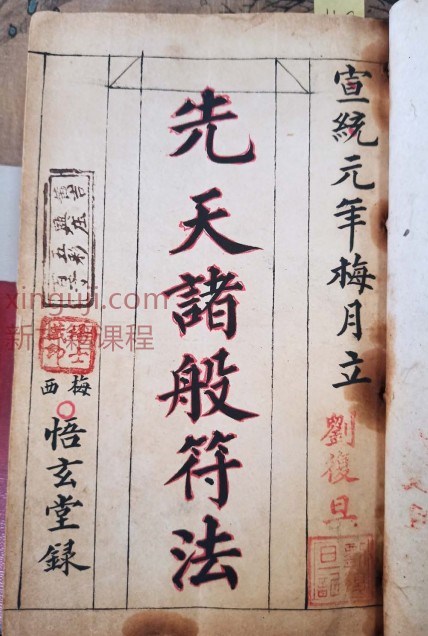 宣統元年梅月立
劉復具
先天諸般符法
梅西
悟玄堂録
xinguji.com
新古籍课程